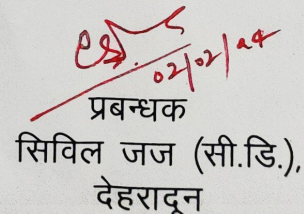 02/02/24
प्रबन्धक
सिविल जज (सी.डि.),
देहरादून